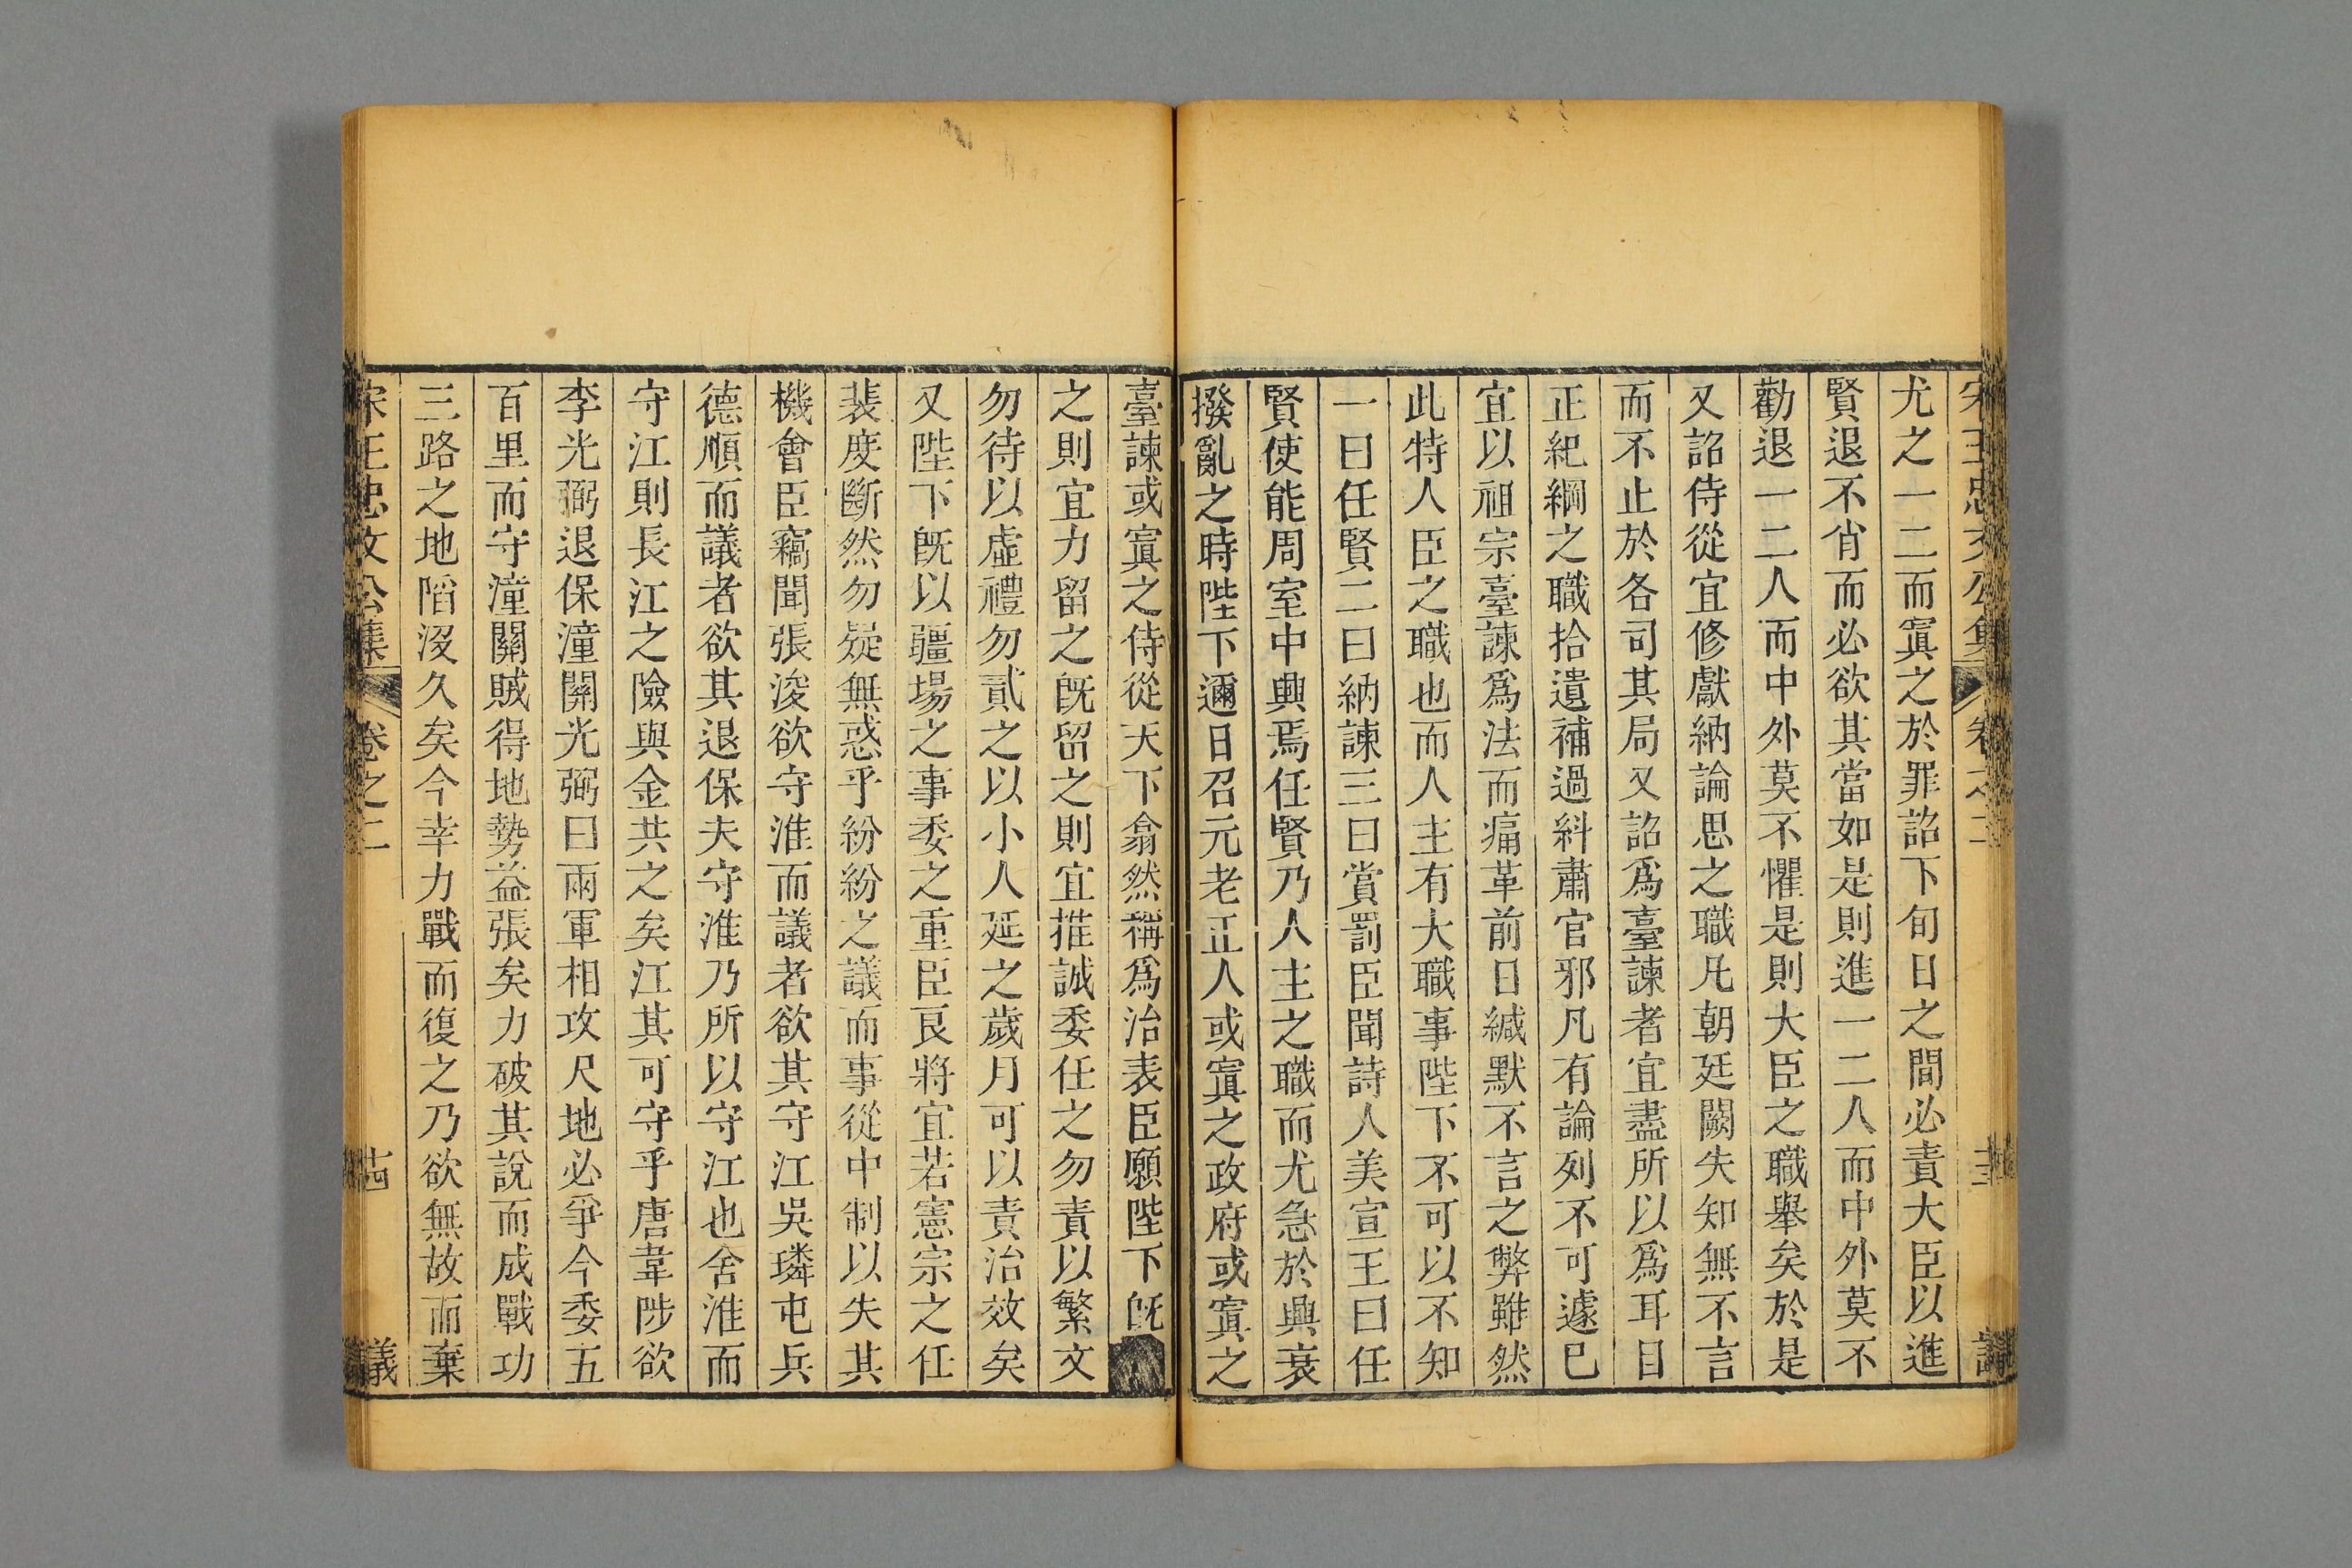 宋王忠文公集 卷之二 十三 議
尤之一二而寘之於罪詔下旬日之間必責大臣以進
賢退不肖而必欲其當如是則進一二人而中外莫不
勸退一二人而中外莫不懼是則大臣之職舉矣於是
又詔侍從宜修獻納論思之職凡朝廷闕失知無不言
而不止於各司其局又詔爲臺諫者宜盡所以爲耳目
正紀綱之職拾遺補過糾肅官邪凡有論列不可遽已
宜以祖宗臺諫爲法而痛革前日緘默不言之弊雖然
此特人臣之職也而人主有大職事陛下不可以不知
一曰任賢二曰納諫三曰賞罰臣聞詩人美宣王曰任
賢使能周室中興焉任賢乃人主之職而尤急於興衰
撥亂之時陛下邇日召元老正人或寘之政府或寘之
臺諫或寘之侍從天下翕然稱爲治表臣願陛下旣
之則宜力留之旣留之則宜推誠委任之勿責以繁文
勿待以虛禮勿貳之以小人延之歲月可以責治效矣
又陛下旣以疆場之事委之重臣良將宜若憲宗之任
裴度斷然勿疑無惑乎紛紛之議而事從中制以失其
機會臣竊聞張浚欲守淮而議者欲其守江吳璘屯兵
德順而議者欲其退保夫守淮乃所以守江也舍淮而
守江則長江之險與金共之矣江其可守乎唐韋陟欲
李光弼退保潼關光弼曰兩軍相攻尺地必爭今委五
百里而守潼關賊得地勢益張矣力破其說而成戰功
三路之地陷沒久矣今幸力戰而復之乃欲無故而棄
宋王忠文公集 卷之二 十四 議